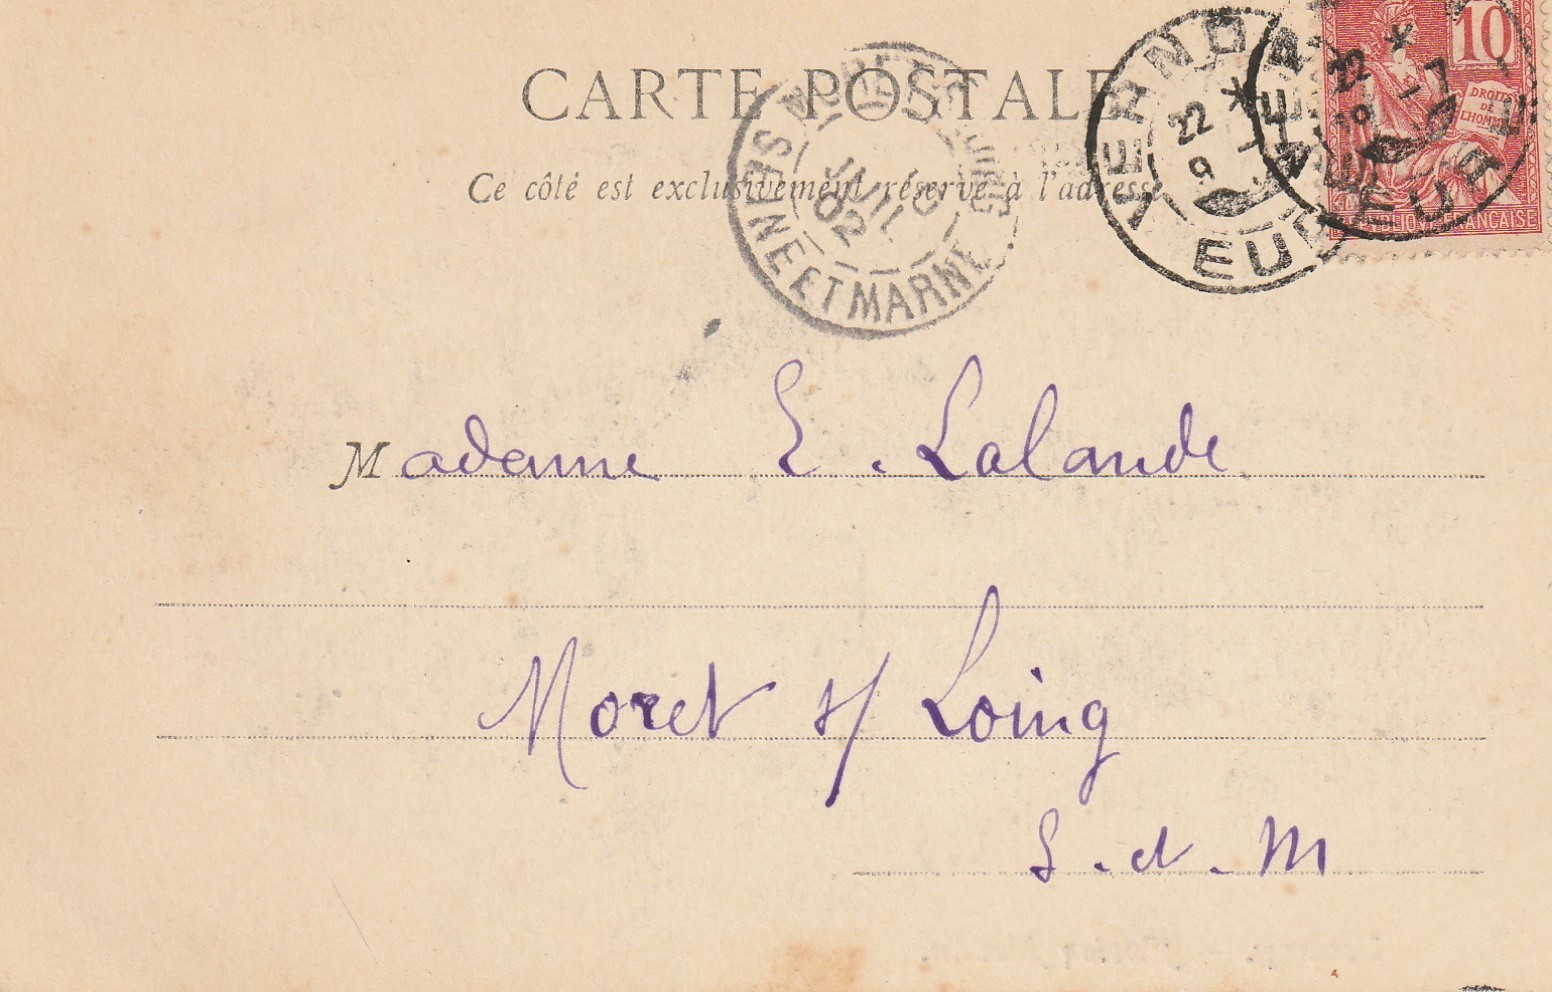 CARTE POSTALE
Ce côté est exclusivement réservé à l'adresse
SEINE ET MARNE
02
VERNON
22
9
EURE
10
DROITS
DE
L'HOMME
REPUBLIQUE FRANÇAISE
Madame E. Lalande
Moret s/ Loing
S. et. M